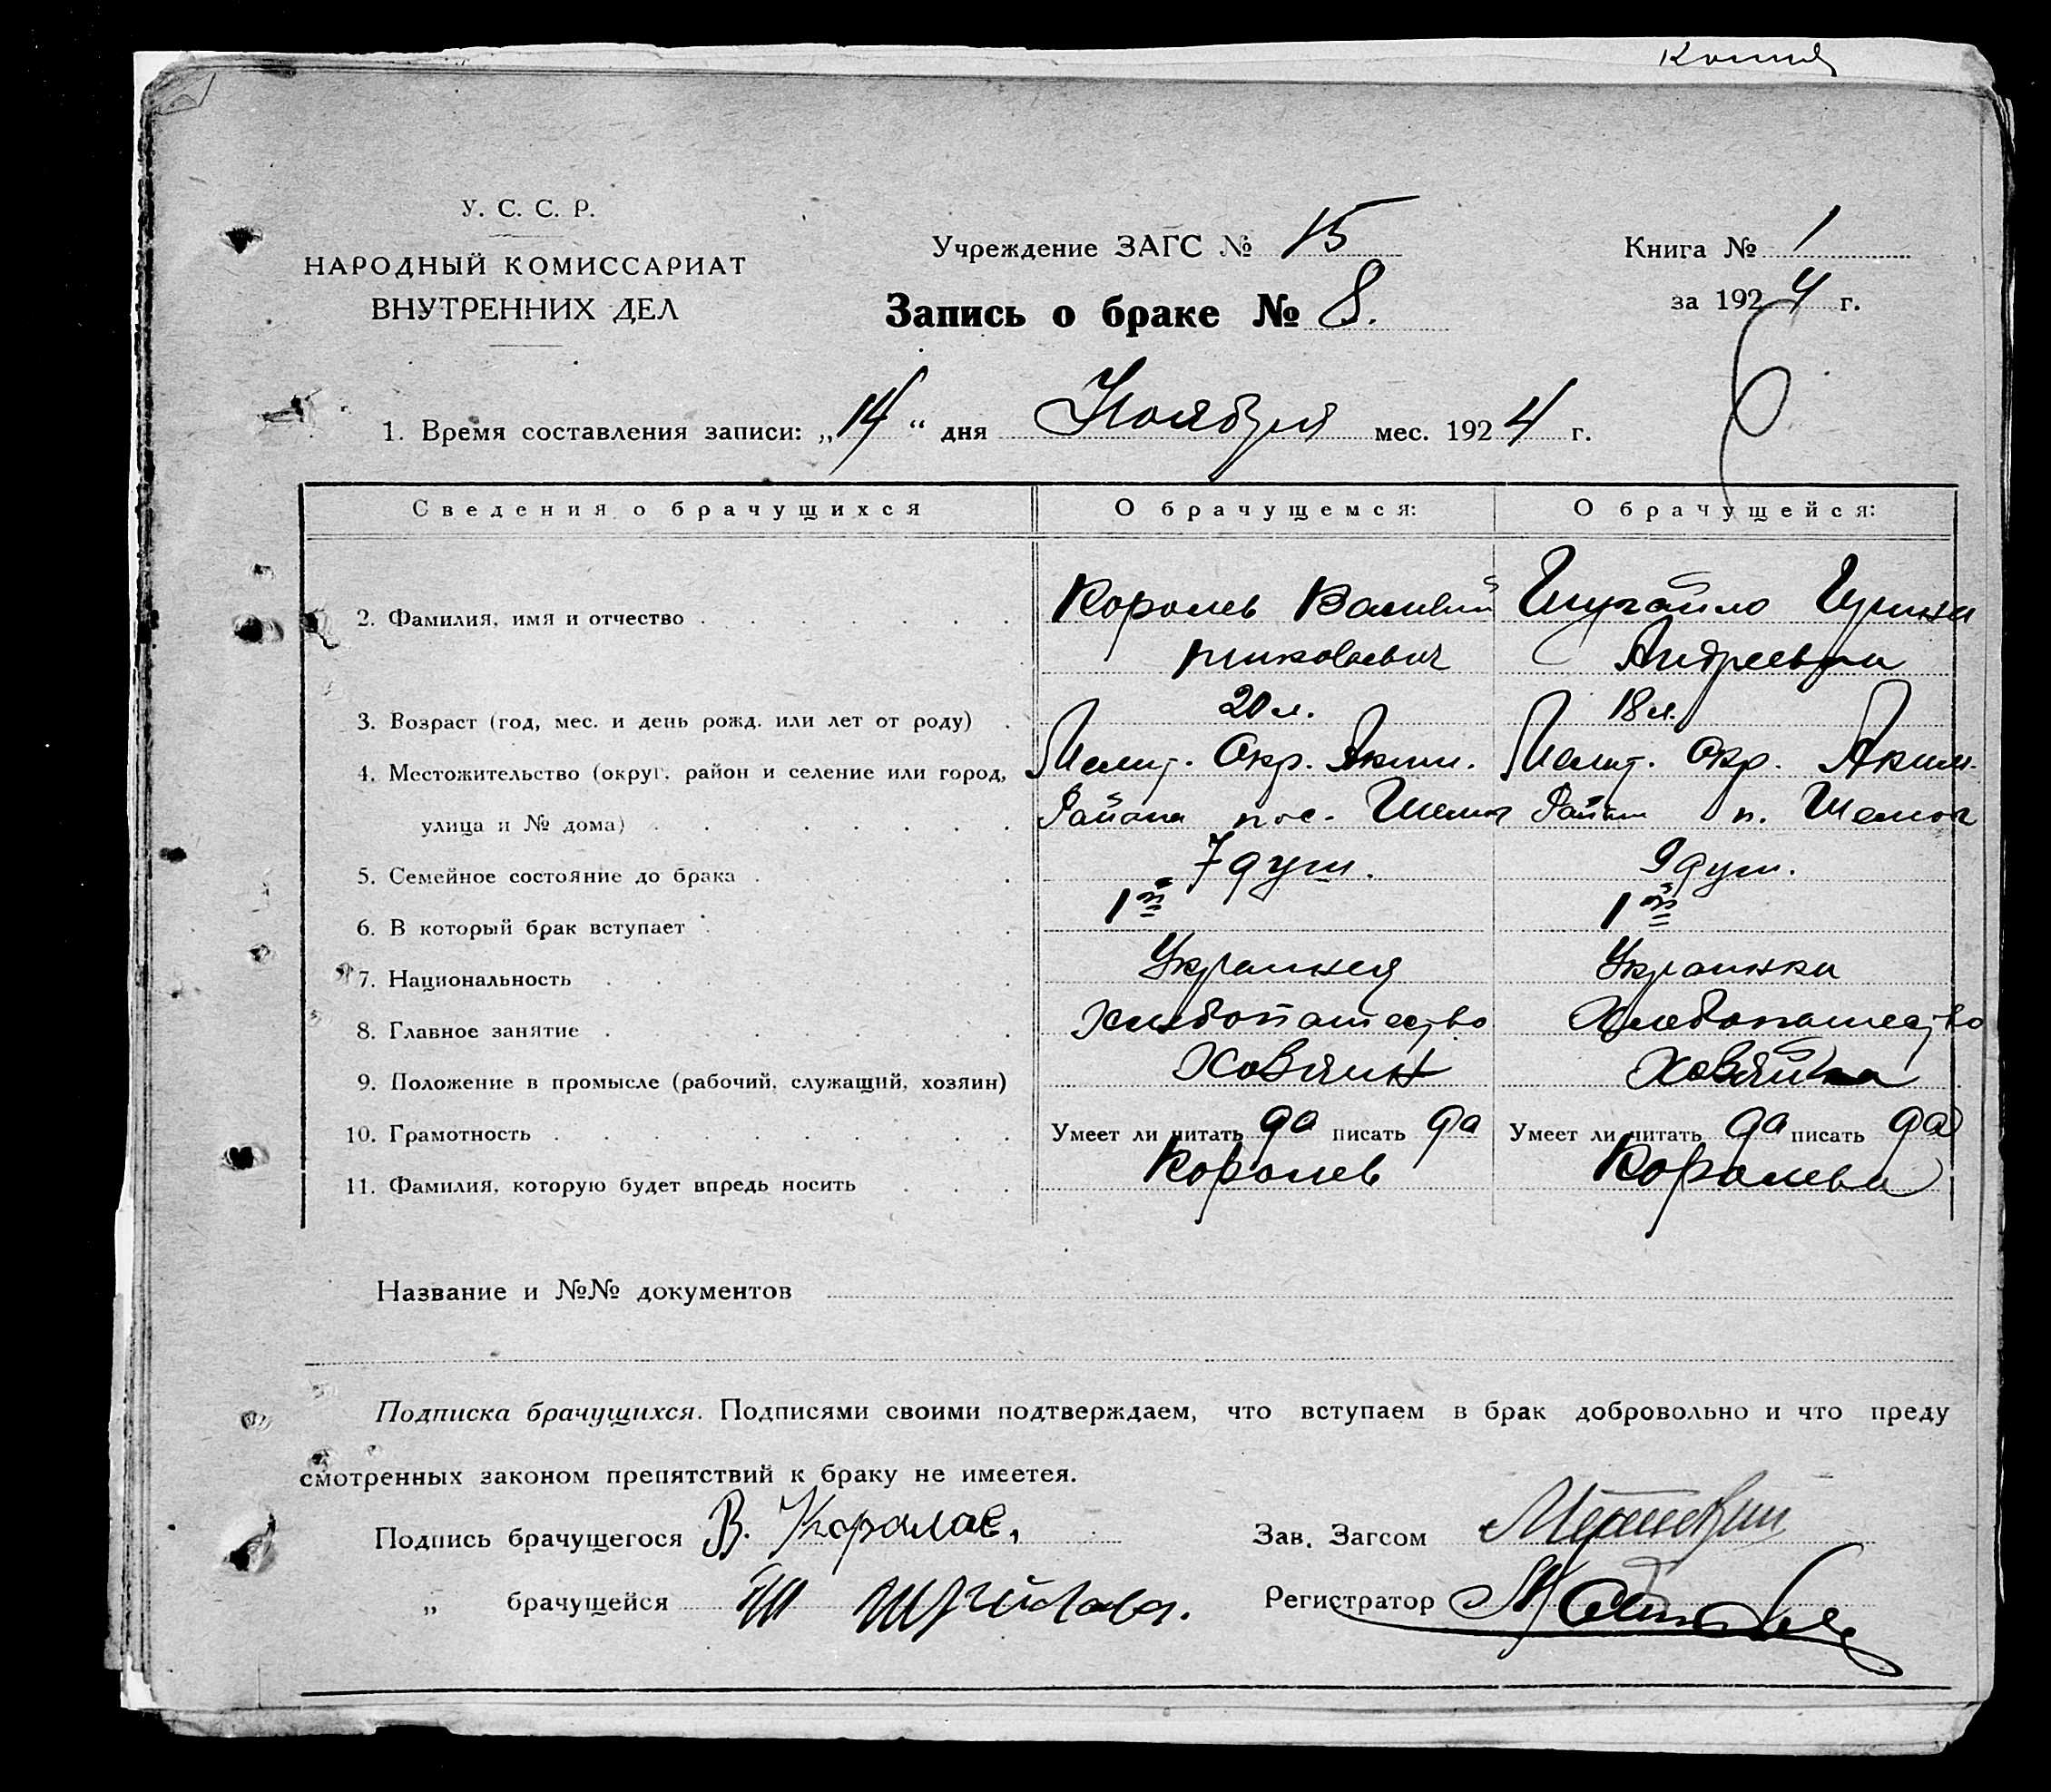 Копия
У. С. С. Р.
НАРОДНЫЙ КОМИССАРИАТ
ВНУТРЕННИХ ДЕЛ
Учреждение ЗАГС № 15
Запись о браке № 8.
Книга № 1
за 1924 г.
6
1. Время составления записи: „14“ дня Ноября мес. 1924 г.
Сведения о брачущихся О брачущемся: О брачущейся:
2. Фамилия, имя и отчество Королев Василий
николаевич Андреевна
3. Возраст (год, мес. и день рожд. или лет от роду) 20 л. 18 л.
4. Местожительство (округ, район и селение или город, Мелит. Окр. Аким. Мелит. Окр. Аким.
улица и № дома) Района пос. Шелюг Район п. Шелюг
5. Семейное состояние до брака 7 душ. 9 душ.
6. В который брак вступает 1й 1й
7. Национальность Украинец Украинка
8. Главное занятие Хлебопашество Хлебопашество
9. Положение в промысле (рабочий, служащий, хозяин) Хозяин Хозяйка
10. Грамотность Умеет ли читать да писать да Умеет ли читать да писать да
11. Фамилия, которую будет впредь носить Королев Королева
Название и №№ документов
Подписка брачущихся. Подписями своими подтверждаем, что вступаем в брак добровольно и что преду
смотренных законом препятствий к браку не имеетея.
Подпись брачущегося В. Королев,
Зав. Загсом
„ брачущейся
Регистратор